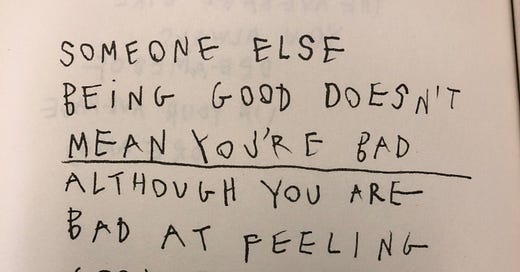 SOMEONE ELSE
BEING GOOD DOESN'T
MEAN YOU'RE BAD
ALTHOUGH YOU ARE
BAD AT FEELING